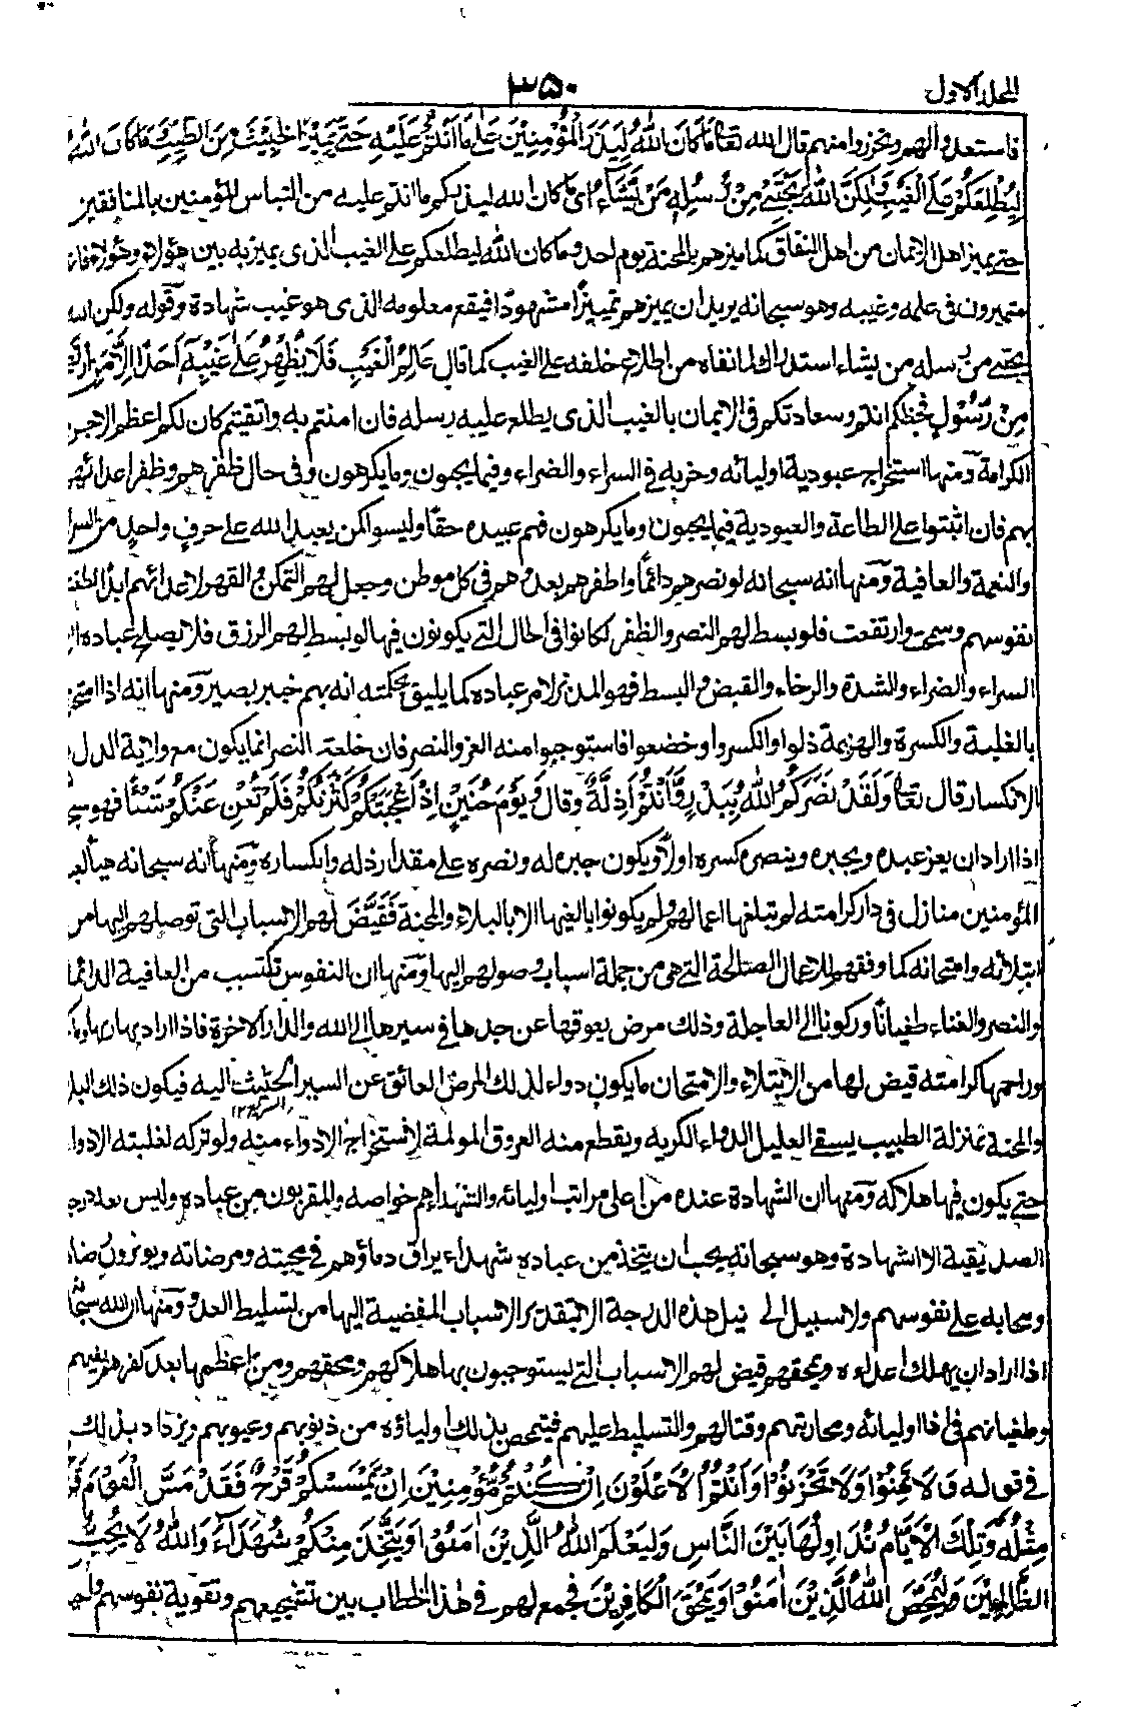 المجلد الاول
٣٥٠
فاستعدوا لهم وتحرزوا منهم قال الله تعالى مَا كَانَ اللهُ لِيَذَرَ الْمُؤْمِنِيْنَ عَلٰى مَا اَنْتُمْ عَلَيْهِ حَتّٰى يَمِيْزَ الْخَبِيْثَ مِنَ الطَّيِّبِ وَمَا كَانَ اللهُ
لِيُطْلِعَكُمْ عَلَى الْغَيْبِ وَلٰكِنَّ اللهَ يَجْتَبِىْ مِنْ رُّسُلِهٖ مَنْ يَّشَآءُ اى ما كان الله ليذركم ما انتم عليه من التباس المؤمنين بالمنافقين
حتى يميز اهل الايمان من اهل النفاق كما ميزهم بالمحنة يوم احد وما كان الله ليطلعكم على الغيب الذى يميز به بين هؤلاء وهؤلاء فان
متميزون فى علمه وغيبه وهو سبحانه يريد ان يميزهم تمييزًا مشهودًا فيقع معلومه الذى هو غيب شهادة وقوله ولكن الله
يجتبى من رسله من يشاء استدراك لما نفاه من اطلاع خلقه على الغيب كما قال عَالِمُ الْغَيْبِ فَلَا يُظْهِرُ عَلٰى غَيْبِهٖ اَحَدًا اِلَّا مَنِ ارْتَضٰى
مِنْ رَّسُوْلٍ فحظكم انتم وسعادتكم فى الايمان بالغيب الذى يطلع عليه رسله فان امنتم به واتقيتم كان لكم اعظم الاجر
الكرامة ومنها استخراج عبودية اوليائه وحزبه فى السراء والضراء وفيما يحبون وما يكرهون وفى حال ظفرهم وظفر اعدائهم
بهم فان اثبتوا على الطاعة والعبودية فيما يحبون وما يكرهون فهم عبيده حقا وليسوا كمن يعبد الله على حرف واحد من السراء
والنعمة والعافية ومنها انه سبحانه لو نصرهم دائمًا واظفرهم بعدوهم فى كل موطن وجعل لهم التمكن والقهر لاعدائهم ابدًا لطغت
نفوسهم وسمخت وارتفعت فلو بسط لهم النصر والظفر لكانوا فى الحال التى يكونون فيها لو بسط لهم الرزق فلا يصلح عباده الا
السراء والضراء والشدة والرخاء والقبض والبسط فهو المدبر لامر عباده كما يليق بحكمته انه بهم خبير بصير ومنها انه اذا امتحنهم
بالغلبة والكسرة والهزيمة ذلوا وانكسروا وخضعوا فاستوجبوا منه العز والنصر فان خلعة النصر انما يكون مع ولاية الذل و
الانكسار قال تعالى وَلَقَدْ نَصَرَكُمُ اللهُ بِبَدْرٍ وَّاَنْتُمْ اَذِلَّةٌ وقال وَيَوْمَ حُنَيْنٍ اِذْ اَعْجَبَتْكُمْ كَثْرَتُكُمْ فَلَمْ تُغْنِ عَنْكُمْ شَيْئًا فهو سبحانه
اذا اراد ان يعز عبده ويجبره وينصره كسره اولًا ويكون جبره له ونصره على مقدار ذله وانكساره ومنها انه سبحانه هيأ لعباده
المؤمنين منازل فى دار كرامته لم تبلغها اعمالهم ولم يكونوا بالغيها الا بالبلاء والمحنة فَقَيَّضَ لهم الاسباب التى توصلهم اليها من
ابتلائه وامتحانه كما وفقهم للاعمال الصالحة التى هى من جملة اسباب وصولهم اليها ومنها ان النفوس تكتسب من العافية الدائمة
والنصر والغناء طغيانًا وركونا الى العاجلة وذلك مرض يعوقها عن جدها فى سيرها الى الله والدار الاخرة فاذا اراد بها ربها ومالكها
وراحمها كرامته قيض لها من الابتلاء والامتحان ما يكون دواء لذلك المرض العائق عن السير الحثيث اليه فيكون ذلك البلاء
والمحنة بمنزلة الطبيب يسقى العليل الدواء الكريه ويقطع منه العروق المولمة لاستخراج الادواء منه ولو تركه لغلبته الادواء
حتى يكون فيها هلاكه ومنها ان الشهادة عنده من اعلى مراتب اوليائه والشهداء هم خواصه والمقربون من عباده وليس بعد درجة
الصديقية الا الشهادة وهو سبحانه يحب ان يتخذ من عباده شهداء يراق دماؤهم فى محبته ومرضاته ويوثرون رضاه
ومحابه على نفوسهم ولا سبيل الى نيل هذه الدرجة الا بتقدير الاسباب المفضية اليها من تسليط العدو ومنها ان الله سبحانه
اذا اراد ان يهلك اعداءه ويمحقهم قيض لهم الاسباب التى يستوجبون بها هلاكهم ومحقهم ومن اعظمها بعد كفرهم بغيهم
وطغيانهم فى اذا اوليائه ومحاربتهم وقتالهم والتسليط عليهم فيتمحص بذلك اولياؤه من ذنوبهم وعيوبهم ويزداد بذلك
فى قوله وَلَا تَهِنُوْا وَلَا تَحْزَنُوْا وَاَنْتُمُ الْاَعْلَوْنَ اِنْ كُنْتُمْ مُّؤْمِنِيْنَ اِنْ يَّمْسَسْكُمْ قَرْحٌ فَقَدْ مَسَّ الْقَوْمَ قَرْحٌ
مِّثْلُهٗ وَتِلْكَ الْاَيَّامُ نُدَاوِلُهَا بَيْنَ النَّاسِ وَلِيَعْلَمَ اللهُ الَّذِيْنَ اٰمَنُوْا وَيَتَّخِذَ مِنْكُمْ شُهَدَآءَ وَاللهُ لَا يُحِبُّ
الظّٰلِمِيْنَ وَلِيُمَحِّصَ اللهُ الَّذِيْنَ اٰمَنُوْا وَيَمْحَقَ الْكَافِرِيْنَ فجمع لهم فى هذا الخطاب بين تشجيعهم وتقوية نفوسهم